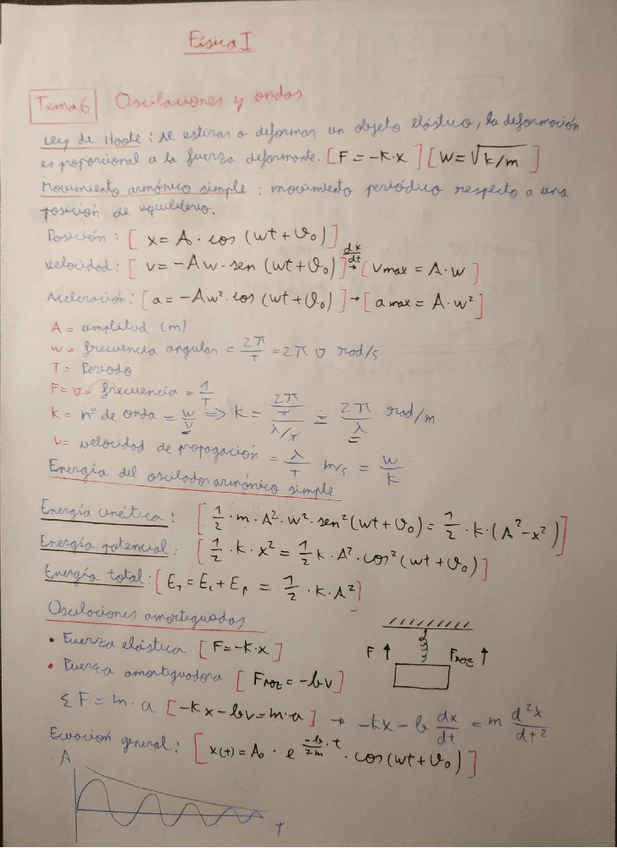 Física I
Tema 6 Oscilaciones y ondas
Ley de Hooke: Al estirar o deformar un objeto elástico, la deformación
es proporcional a la fuerza deformante. [F = -K·x] [W = √k/m]
Movimiento armónico simple: movimiento periódico respecto a una
posición de equilibrio.
Posición: [x = A · cos (wt + φ₀)]
Velocidad: [v = -Aw · sen (wt + φ₀)] dx/dt → [Vmax = A·w]
Aceleración: [a = -Aw² · cos (wt + φ₀)] → [a max = A·w²]
A = amplitud (m)
w = frecuencia angular = 2π/T = 2π ν rad/s
T = Periodo
F = ν = frecuencia = 1/T
K = nº de onda = w/v ⇒ K = 2π/T / λ/T = 2π/λ rad/m
V = velocidad de propagación = λ/T m/s = w/K
Energía del oscilador armónico simple
Energía cinética: [1/2 · m · A² · w² · sen² (wt + φ₀) = 1/2 · K · (A² - x²)]
Energía potencial: [1/2 · K · x² = 1/2 K · A² · cos² (wt + φ₀)]
Energía total: [E_T = E_c + E_p = 1/2 · K · A²]
Oscilaciones amortiguadas
• Fuerza elástica [F = -K·x]
• Fuerza amortiguadora [F_ROZ = -bv]
F ↑ F_ROZ ↑
ΣF = m · a [-Kx - bv = m·a] → -Kx - b dx/dt = m d²x/dt²
Ecuacion general: [x(t) = A₀ · e^(-b/2m · t) · cos (wt + φ₀)]
A
T